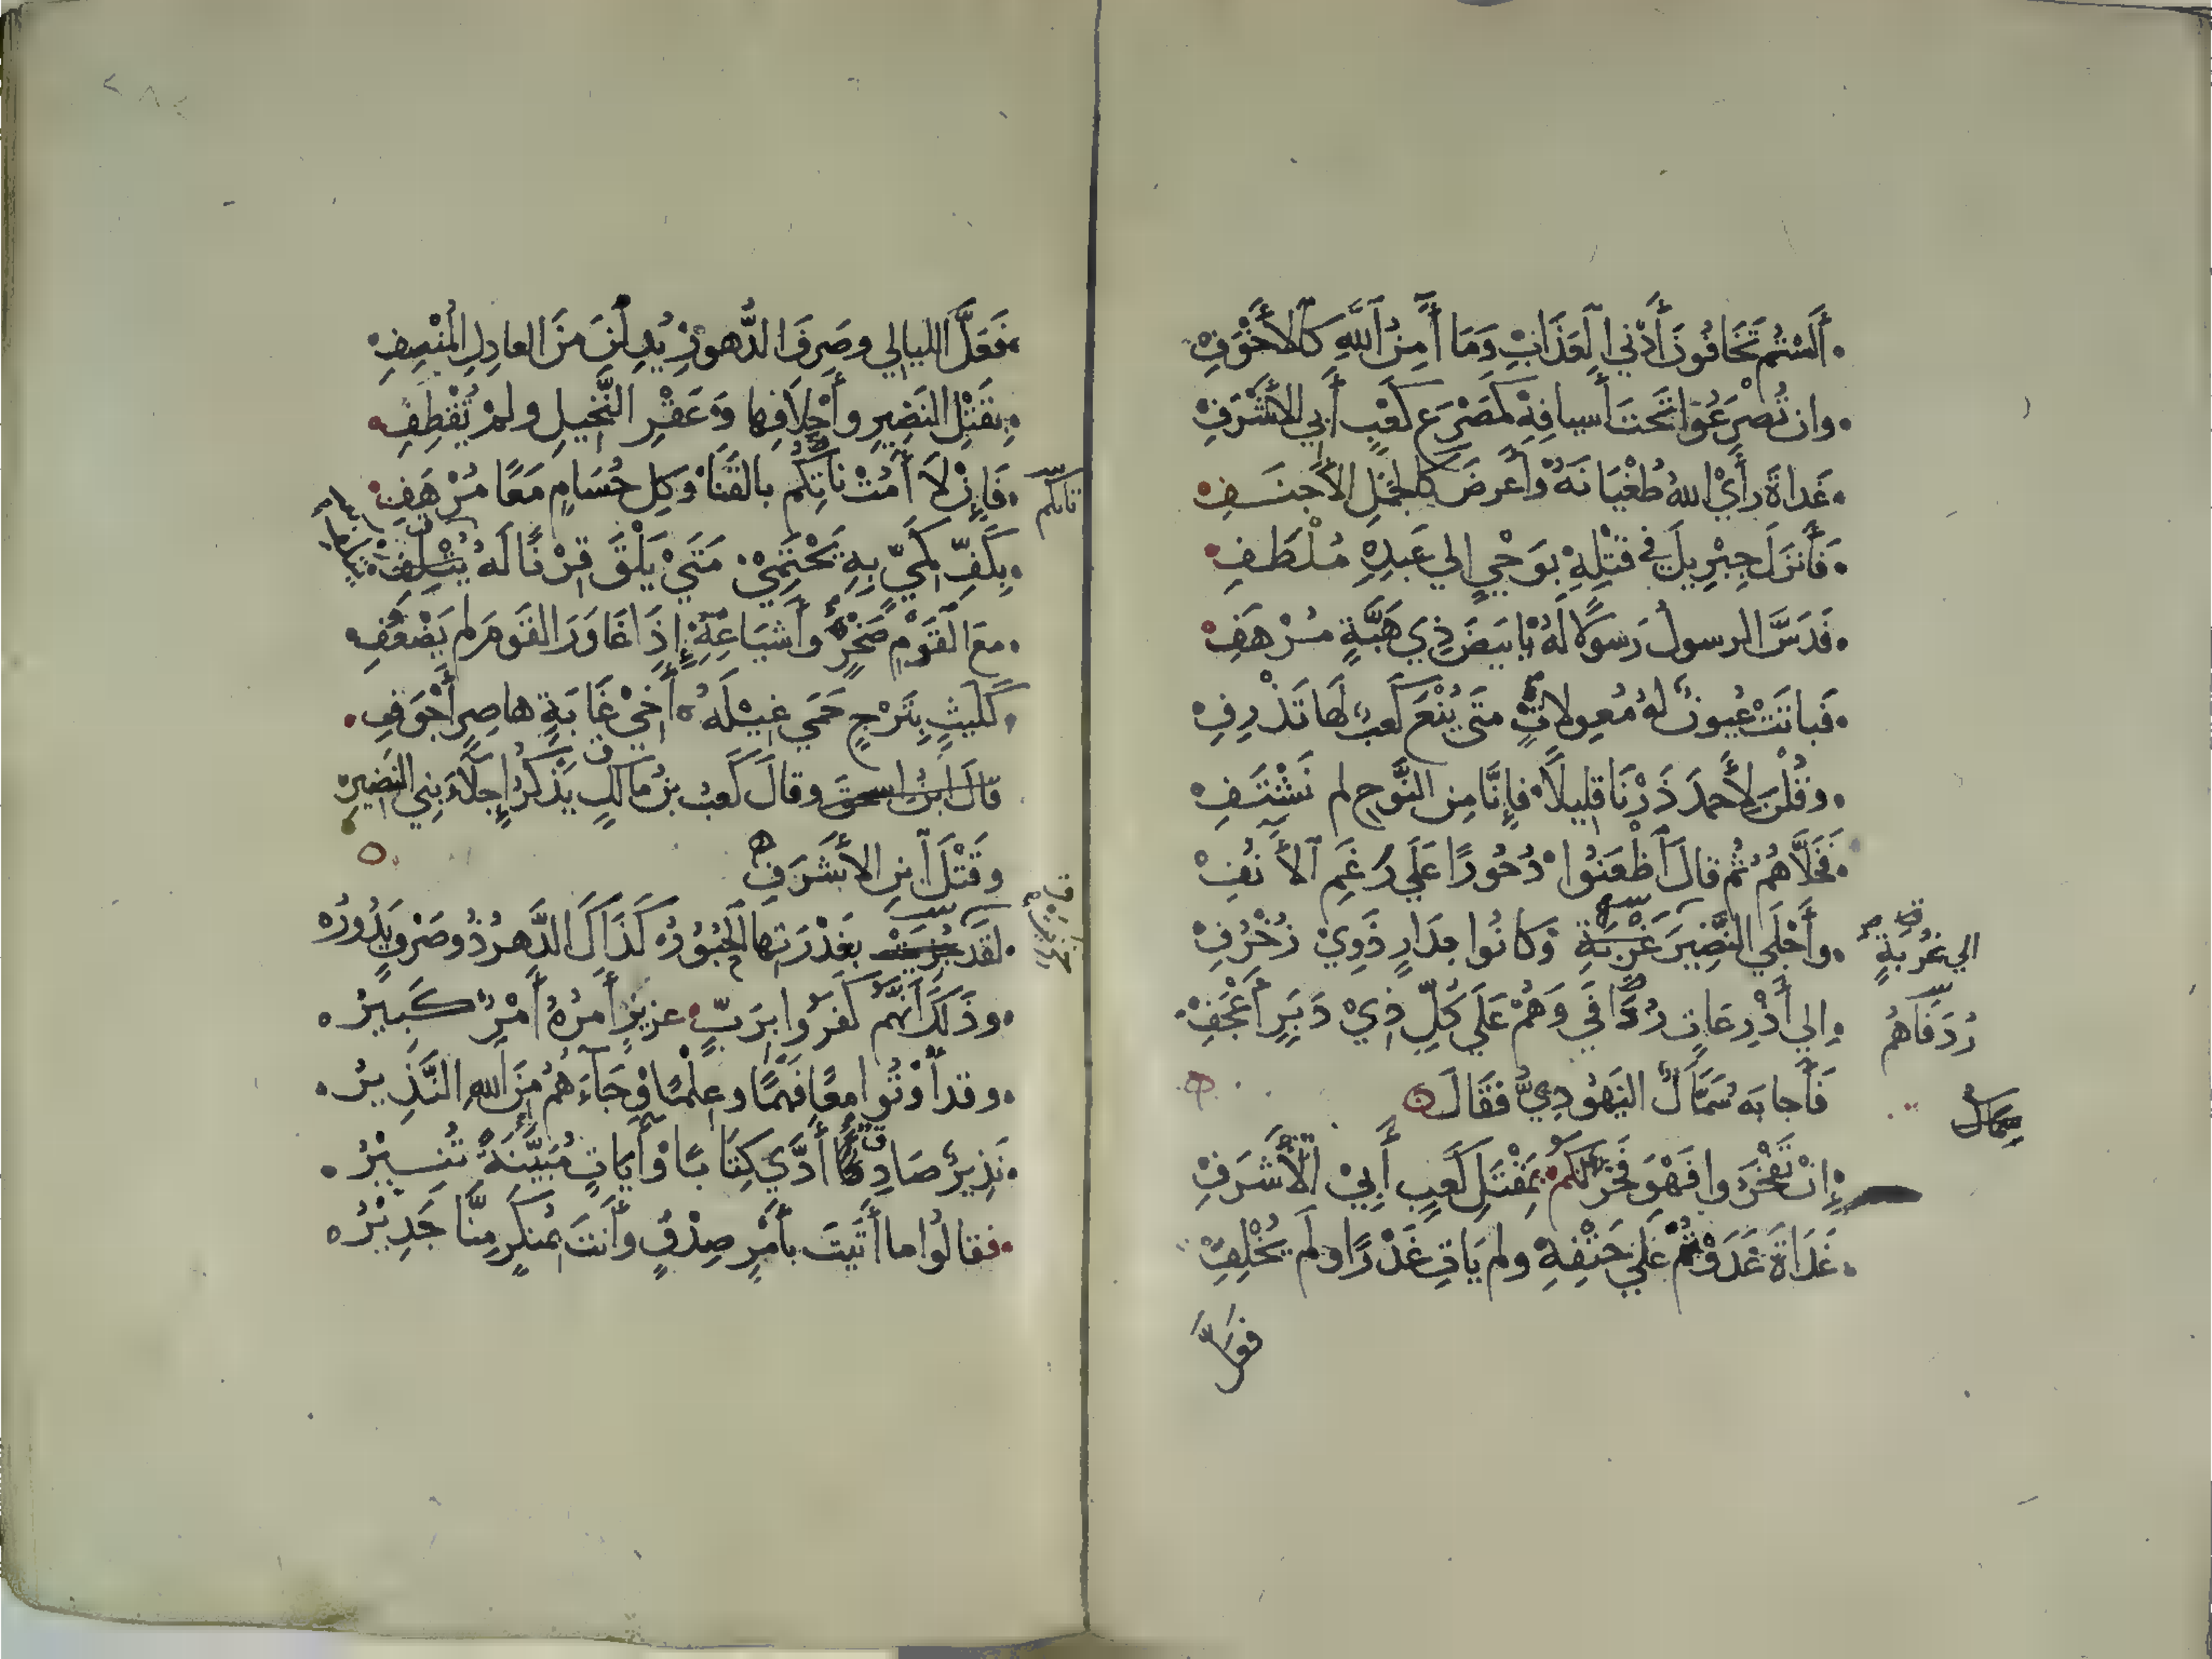 أَلَسْتُمْ تَخَافُونَ أَدْنَي الْعَذَابِ وَمَا آمِنُ اللَّهِ كَالْأَخْوَفِ
وان تُصْرَعُوا تَحْتَ أَسيافِهِ كَمَصْرَعِ كَعْبٍ أَبي الأَشْرَفِ
غَدَاةَ رَأَيْ اللهُ طُغْيَانَهُ وَأَعْرَضَ كَالْجَمَلِ الأَجْنَفِ
فَأَنزَلَ جِبْرِيلَ في قَتْلِهِ بِوَحْيٍ إلي عَبدِهِ مُلْطَفِ
فَدَسَّ الرسولُ رَسولًا لَهُ بِأَبيَضَ ذِي هَبَّةٍ مُرْهَفِ
فَباتَتْ عُيونٌ لهُ مُعوِلاتٍ مَتَي يُنْعَ كَعبٌ لَها تَذْرِفِ
وقُلْنَ لِأَحمدَ ذَرْنَا قلِيلاً فإِنَّا مِن النَّوحِ لم نَشْتَفِ
فَخَلَّاهُمُ ثُم قالَ اظْعَنُوا دُحُورًا عَلَي رَغَمِ الأَنُفِ
وأَجْلَي النَّضِيرَ غُرْبَةٍ وَكَانُوا بِدَارٍ ذَوِيْ زُخْرُفِ
الي غُرْبَةٍ
إلي أَذْرِعَاتٍ رُدَافَي وَهُمْ عَلَي كُلِّ ذِيْ دَبَرٍ أَعْجَفِ
رُدَفَاهُم
فَأَجابَهُ سَمَّاكُ اليَهُودِيُّ فَقَالَ
سِمَاك
إِنْ تَفْخَرُوا فَهْوَ فَخْرٌ لَكُمْ بِمَقْتَلِ كَعبٍ أَبِيْ الأَشرَفِ
غَدَاةَ غَدَوْتُمْ عَلَي حَتْفِهِ ولم يَاتِ غَدْرًا ولم يُخْلِفِ
فعَلَّ
فَعَلَّ الليالِي وصَرفَ الدُّهورِ يُدِلْنَ مِنَ العادِلِ المُنْصِفِ
بِقَتْلِ النَضِيرِ وأَحْلافِها وَعَقْرِ النَّخِيلِ ولمْ تُقْطَفِ
فَإِنْ لاَ أَمُتْ نَاتِكُم بالقَنَا وَكلِ حُسَامٍ مَعًا مُرْهَفِ
نَاتكم
بِكَفِّ كَمِيٍّ بِهِ يَحْتَمِيْ مَتَيْ يَلْقَ قِرْنًا لَهُ يُتْلِفِ
معَ القَوْمِ صَخْرٌ وأَشيَاعِهِ إِذَا غَاوَرَ القَومَ لم يَضْعُفِ
كَلَيثٍ بِتَرْجٍ حَمَي غِيلَهُ أَخِيْ غَابَةٍ هاصِرٍ أَجْوَفِ
قالَ ابنُ اسحقَ وقالَ كَعبُ بنُ مَالكٍ يَذْكرُ إِجلَاءَ بنِي النَضِيرِ
وقَتْلَ ابنِ الأَشْرَفِ
لقَد خَزِيَتْ بِغَدْرَتِها الحُبُورُ كَذَاكَ الدَّهرُ ذُو صَرْفٍ يَدُورُ
وذَلِكَ أَنَّهُم كَفَرُوا بِرَبٍّ عزيزٍ أَمرُهُ أَمْرٌ كَبِيرُ
وقد أُوتُوا معًا فَهْمًا وعِلْمًا وَجَاءَهُمُ مِنَ اللهِ النَّذِيرُ
نَذِيرٌ صَادِقٌ أَدَّي كِتَابًا وَآيَاتٍ مُبَيَّنَةً تُنِيْرُ
فقالُوا ما أَتَيتَ بأَمرٍ صِدْقٍ وأَنتَ بمُنكَرٍ مِنَّا جَدِيْرُ